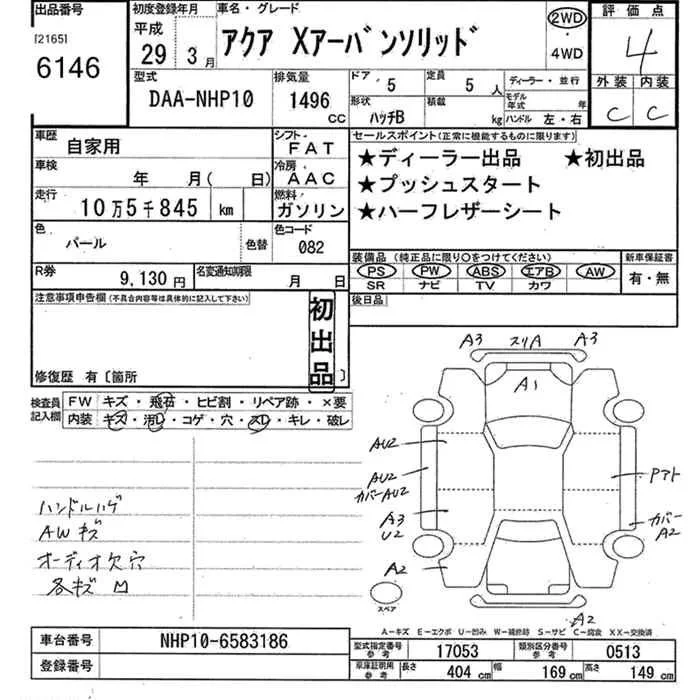 出品番号
[2165]
6146
初度登録年月
平成
29 3月
車名・グレード
アクア Xアーバンソリッド
2WD
・
4WD
評価点
4
外装 内装
C C
型式
DAA-NHP10
排気量
1496
CC
ドア・
5
定員
5 人
形状
ハッチB
積載
kg
ディーラー・並行
モデル年式 年
ハンドル 左・右
車歴
自家用
シフト・
FAT
車検
年 月( 日)
冷房・
AAC
走行
10万5千845 km
燃料・
ガソリン
色
パール
色替
色コード
082
R券
9,130円
名変通知期限
月 日
セールスポイント(正常に機能するものに限ります)
★ディーラー出品 ★初出品
★プッシュスタート
★ハーフレザーシート
装備品 (純正品に限り○をつけてください)
PS PW ABS エアB AW
SR ナビ TV カワ
新車保証書
有・無
後日品
注意事項申告欄(不具合内容等は具体的に記入して下さい)
初出品
修復歴 有〔箇所 〕
検査員記入欄
FW キズ・飛石・ヒビ割・リペア跡・×要
内装 キズ・汚レ・コゲ・穴・スレ・キレ・破レ
ハンドルハゲ
AWキズ
オーディオ欠穴
各キズ凹
A3 スリA A3
A1
AU2
AU2
カバーAU2
A3
U2
A2
Pアト
カバー
A2
A2
スペア
A-キズ E-エクボ U-凹み W-補修跡 S-サビ C-腐食 XX-交換済
車台番号
NHP10-6583186
登録番号
型式指定番号
参考
17053
類別区分番号
参考
0513
車庫証明用
参考
長さ 404 cm 幅 169 cm 高さ 149 cm